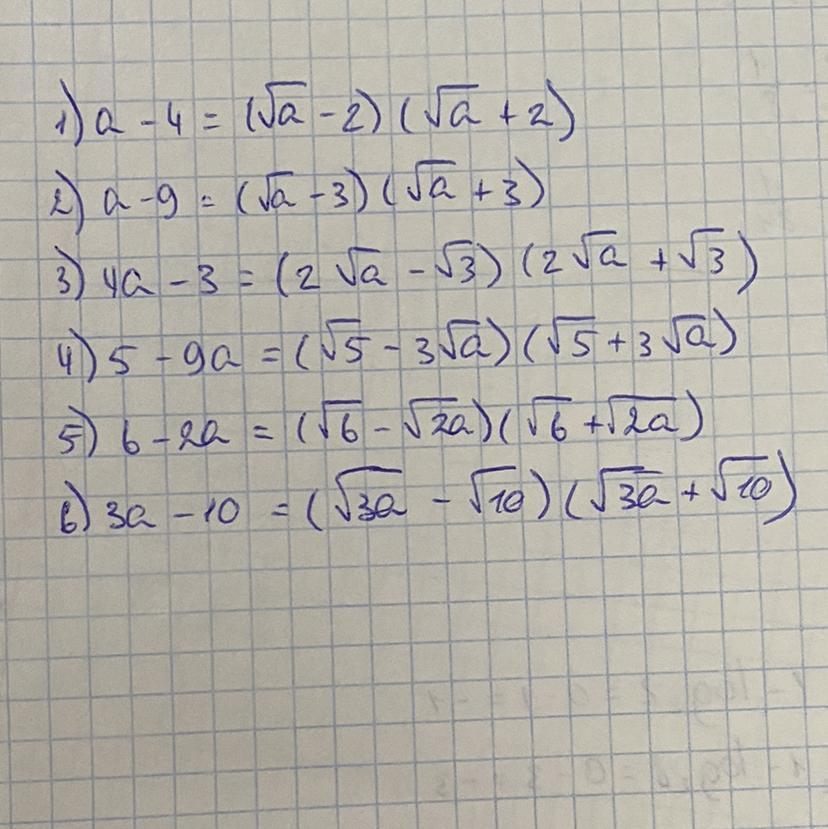 1) a - 4 = (√a - 2) (√a + 2)
2) a - 9 = (√a - 3) (√a + 3)
3) 4a - 3 = (2√a - √3) (2√a + √3)
4) 5 - 9a = (√5 - 3√a) (√5 + 3√a)
5) 6 - 2a = (√6 - √2a) (√6 + √2a)
6) 3a - 10 = (√3a - √10) (√3a + √10)